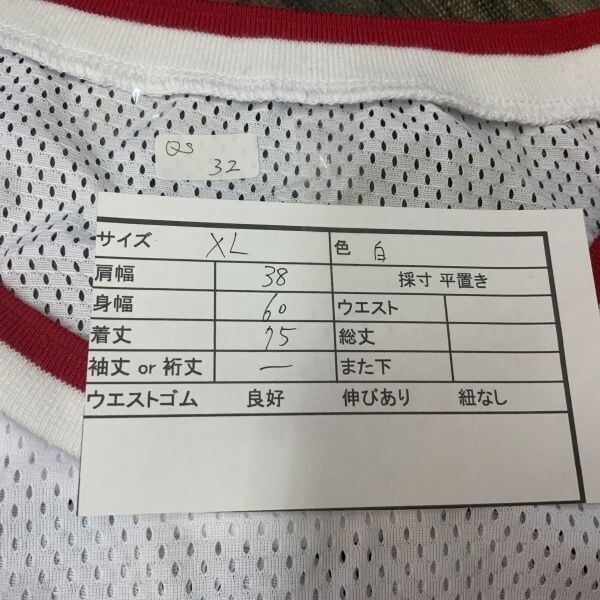 QS
32
サイズ XL 色 白
肩幅 38 採寸 平置き
身幅 60 ウエスト
着丈 75 総丈
袖丈 or 裄丈 — また下
ウエストゴム 良好 伸びあり 紐なし